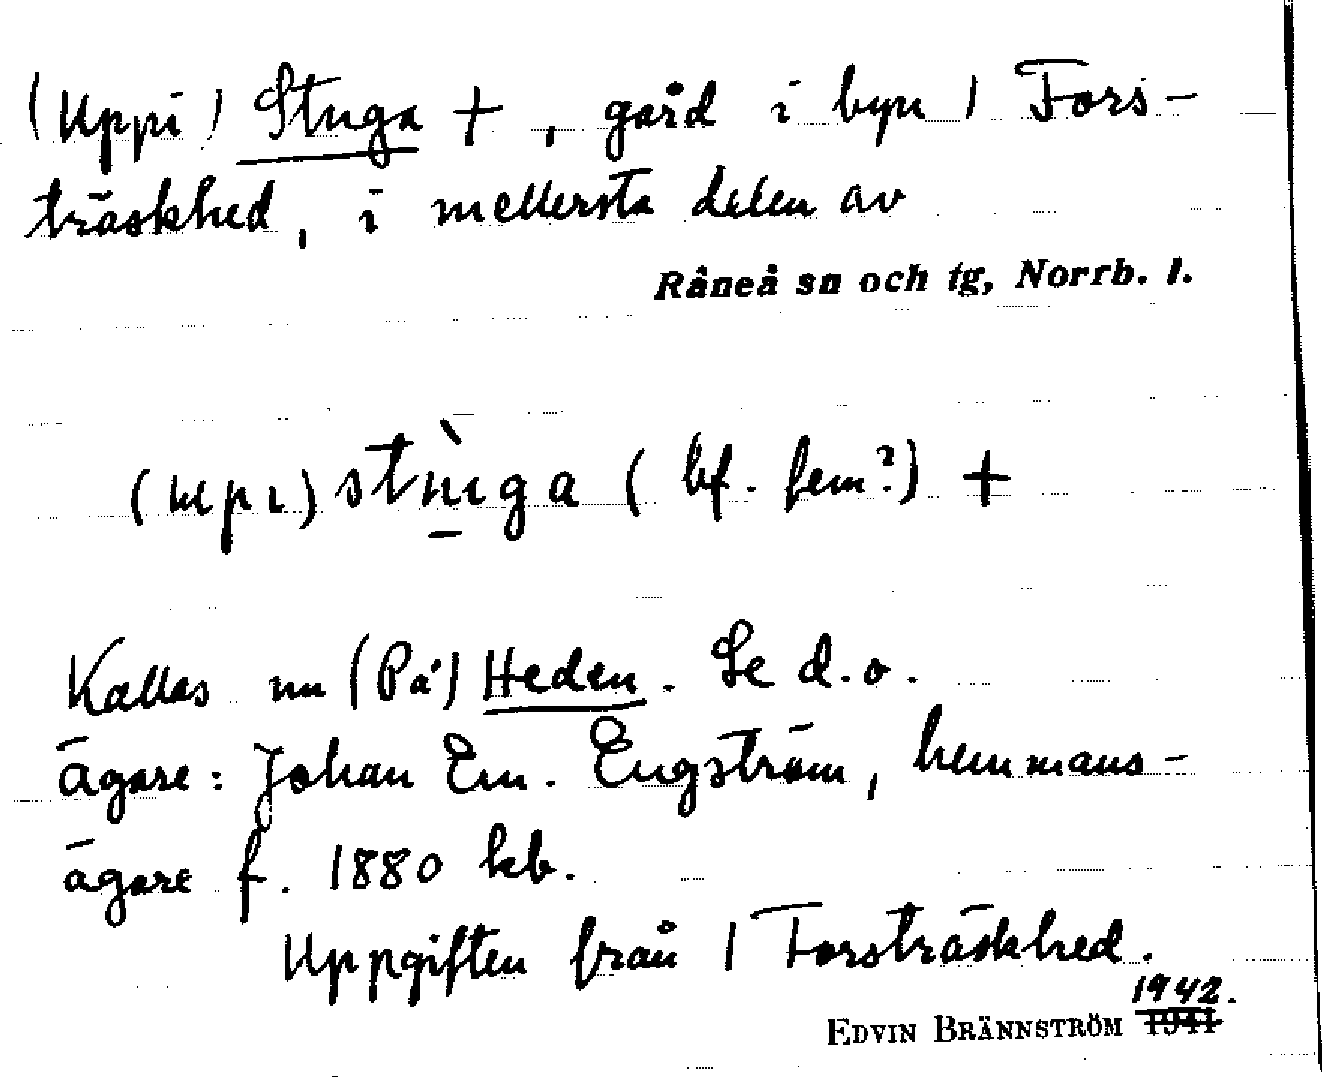 (Uppi) Stuga +, gård i byn 1 Fors-
träskhed, i mellersta delen av
Råneå sn och tg, Norrb. l.
(upı) stùga (bf. fem?) +
Kallas nu (På) Heden. Se d.o.
ägare: Johan Em. Engström, hemmans-
ägare f. 1880 kb.
Uppgiften från 1 Forsträskhed.
1942.
EDVIN BRÄNNSTRÖM 1941